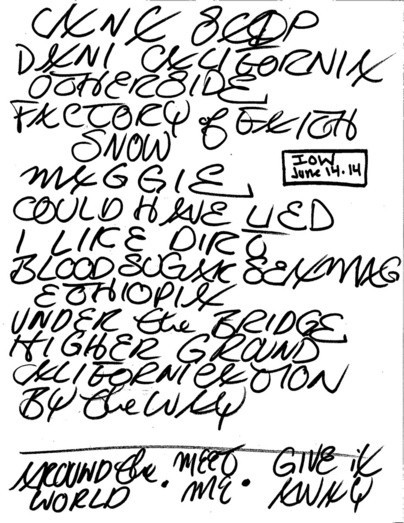 CANT STOP
DANI CALIFORNIA
OTHERSIDE
FACTORY of FAITH
SNOW
IOW
June 14.14
MAGGIE
COULD HAVE LIED
I LIKE DIRT
BLOOD SUGAR SEX MAG
ETHIOPIA
UNDER the BRIDGE
HIGHER GROUND
CALIFORNICATION
BY the WAY
AROUND the MEET GIVE it
WORLD . ME . AWAY